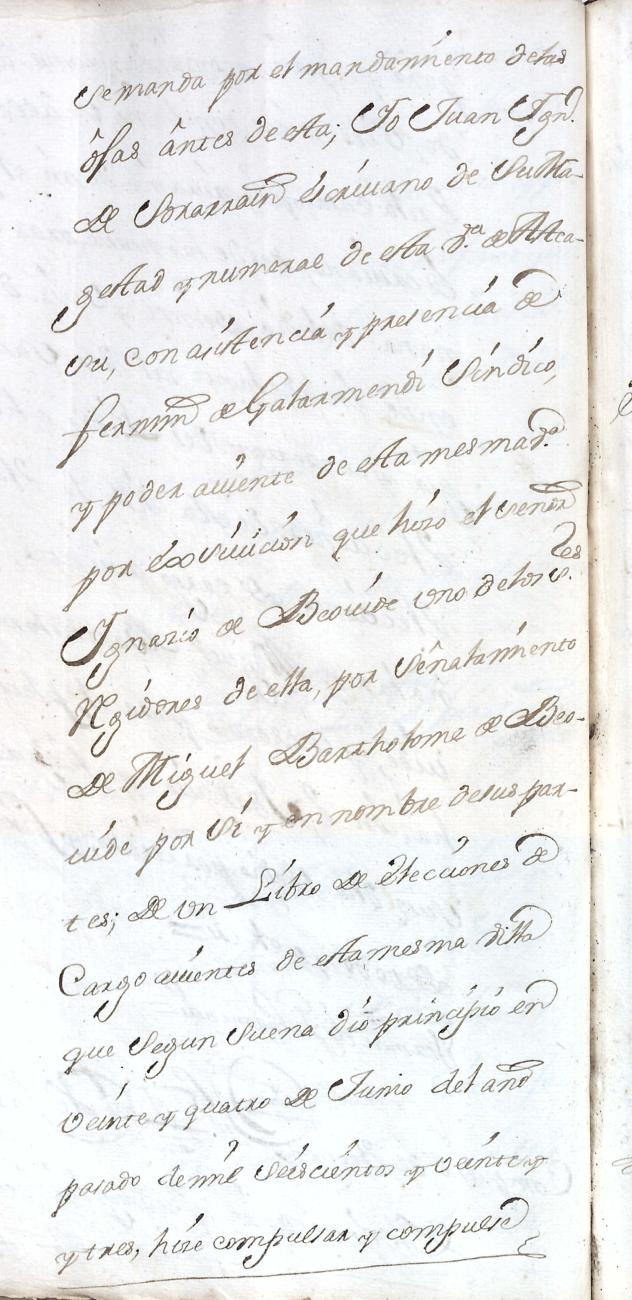 Se manda por el mandamiento de las
ôjas ântes de esta; Yo Juan Ygn.º
De Sorarrain Escrivano de Su Ma-
gestad y numeral de esta v.ª de Alca-
su, con asistencia y presencia de
fermin de Galarmendi Sindico,
y poder aviente de esta mesma v.ª
por éxsivicion que hizo el Señor
Ygnazio de Beovide uno de los S.res
Regidores de ella, por señalamiento
De Miguel Bartholome de Beo-
vide por Si y en nombre de sus par-
tes; De un Libro De Elecciones de
Cargo avientes de esta mesma villa
que Segun Suena dió principio en
veinte y quatro De Junio del año
pasado de mil Seiscientos y veinte y
y tres, hize compulsar y compulsé